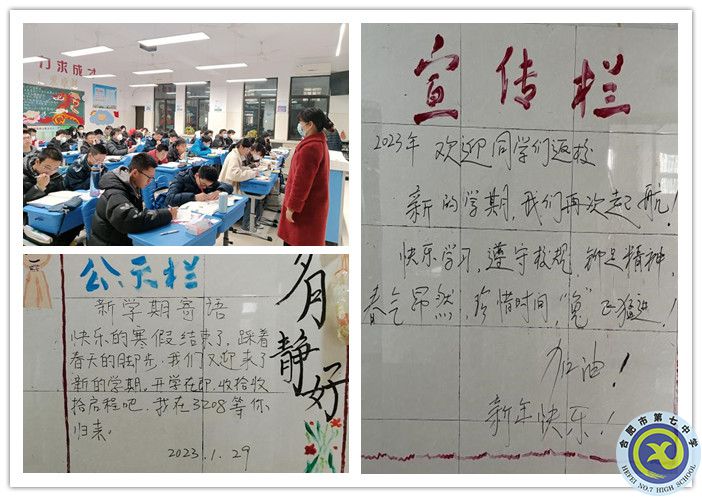 力求成才
公示栏
新学期寄语
快乐的寒假结束了，踩着
春天的脚步，我们又迎来了
新的学期，开学在即，收拾收
拾启程吧，我在3208等你
归来。
2023.1.29
静好
宣传栏
2023年 欢迎同学们返校
新的学期，我们再次起航！
快乐学习，遵守校规，铆足精神，
春气昂然，珍惜时间，"兔"飞猛进！
加油！
新年快乐！
合肥市第七中学
HEFEI NO.7 HIGH SCHOOL